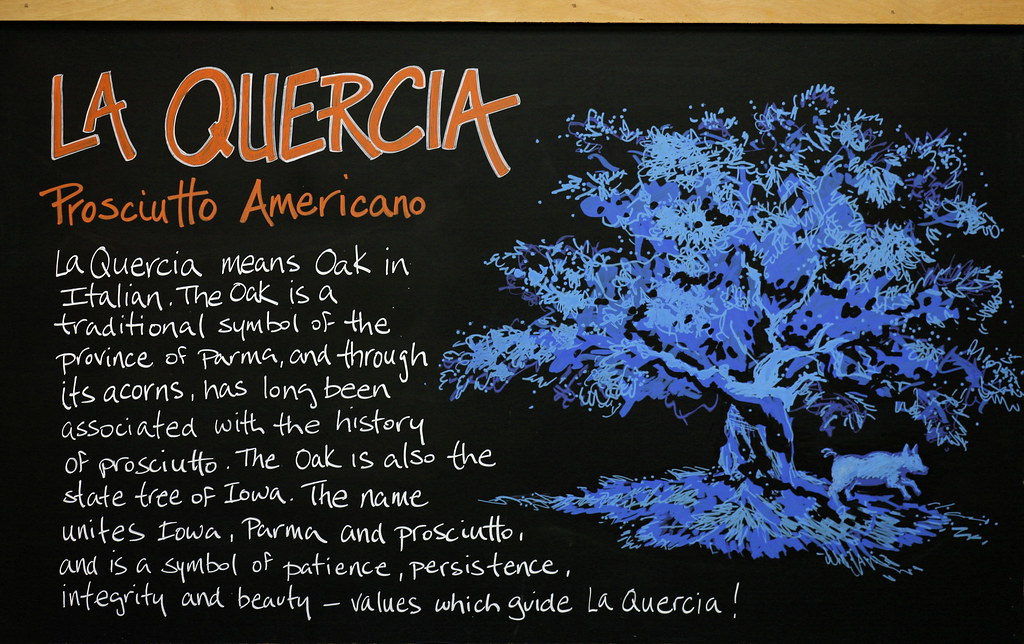 LA QUERCIA
Prosciutto Americano
La Quercia means Oak in
Italian. The Oak is a
traditional symbol of the
province of Parma, and through
its acorns, has long been
associated with the history
of prosciutto. The Oak is also the
state tree of Iowa. The name
unites Iowa, Parma and prosciutto,
and is a symbol of patience, persistence,
integrity and beauty – values which guide La Quercia!